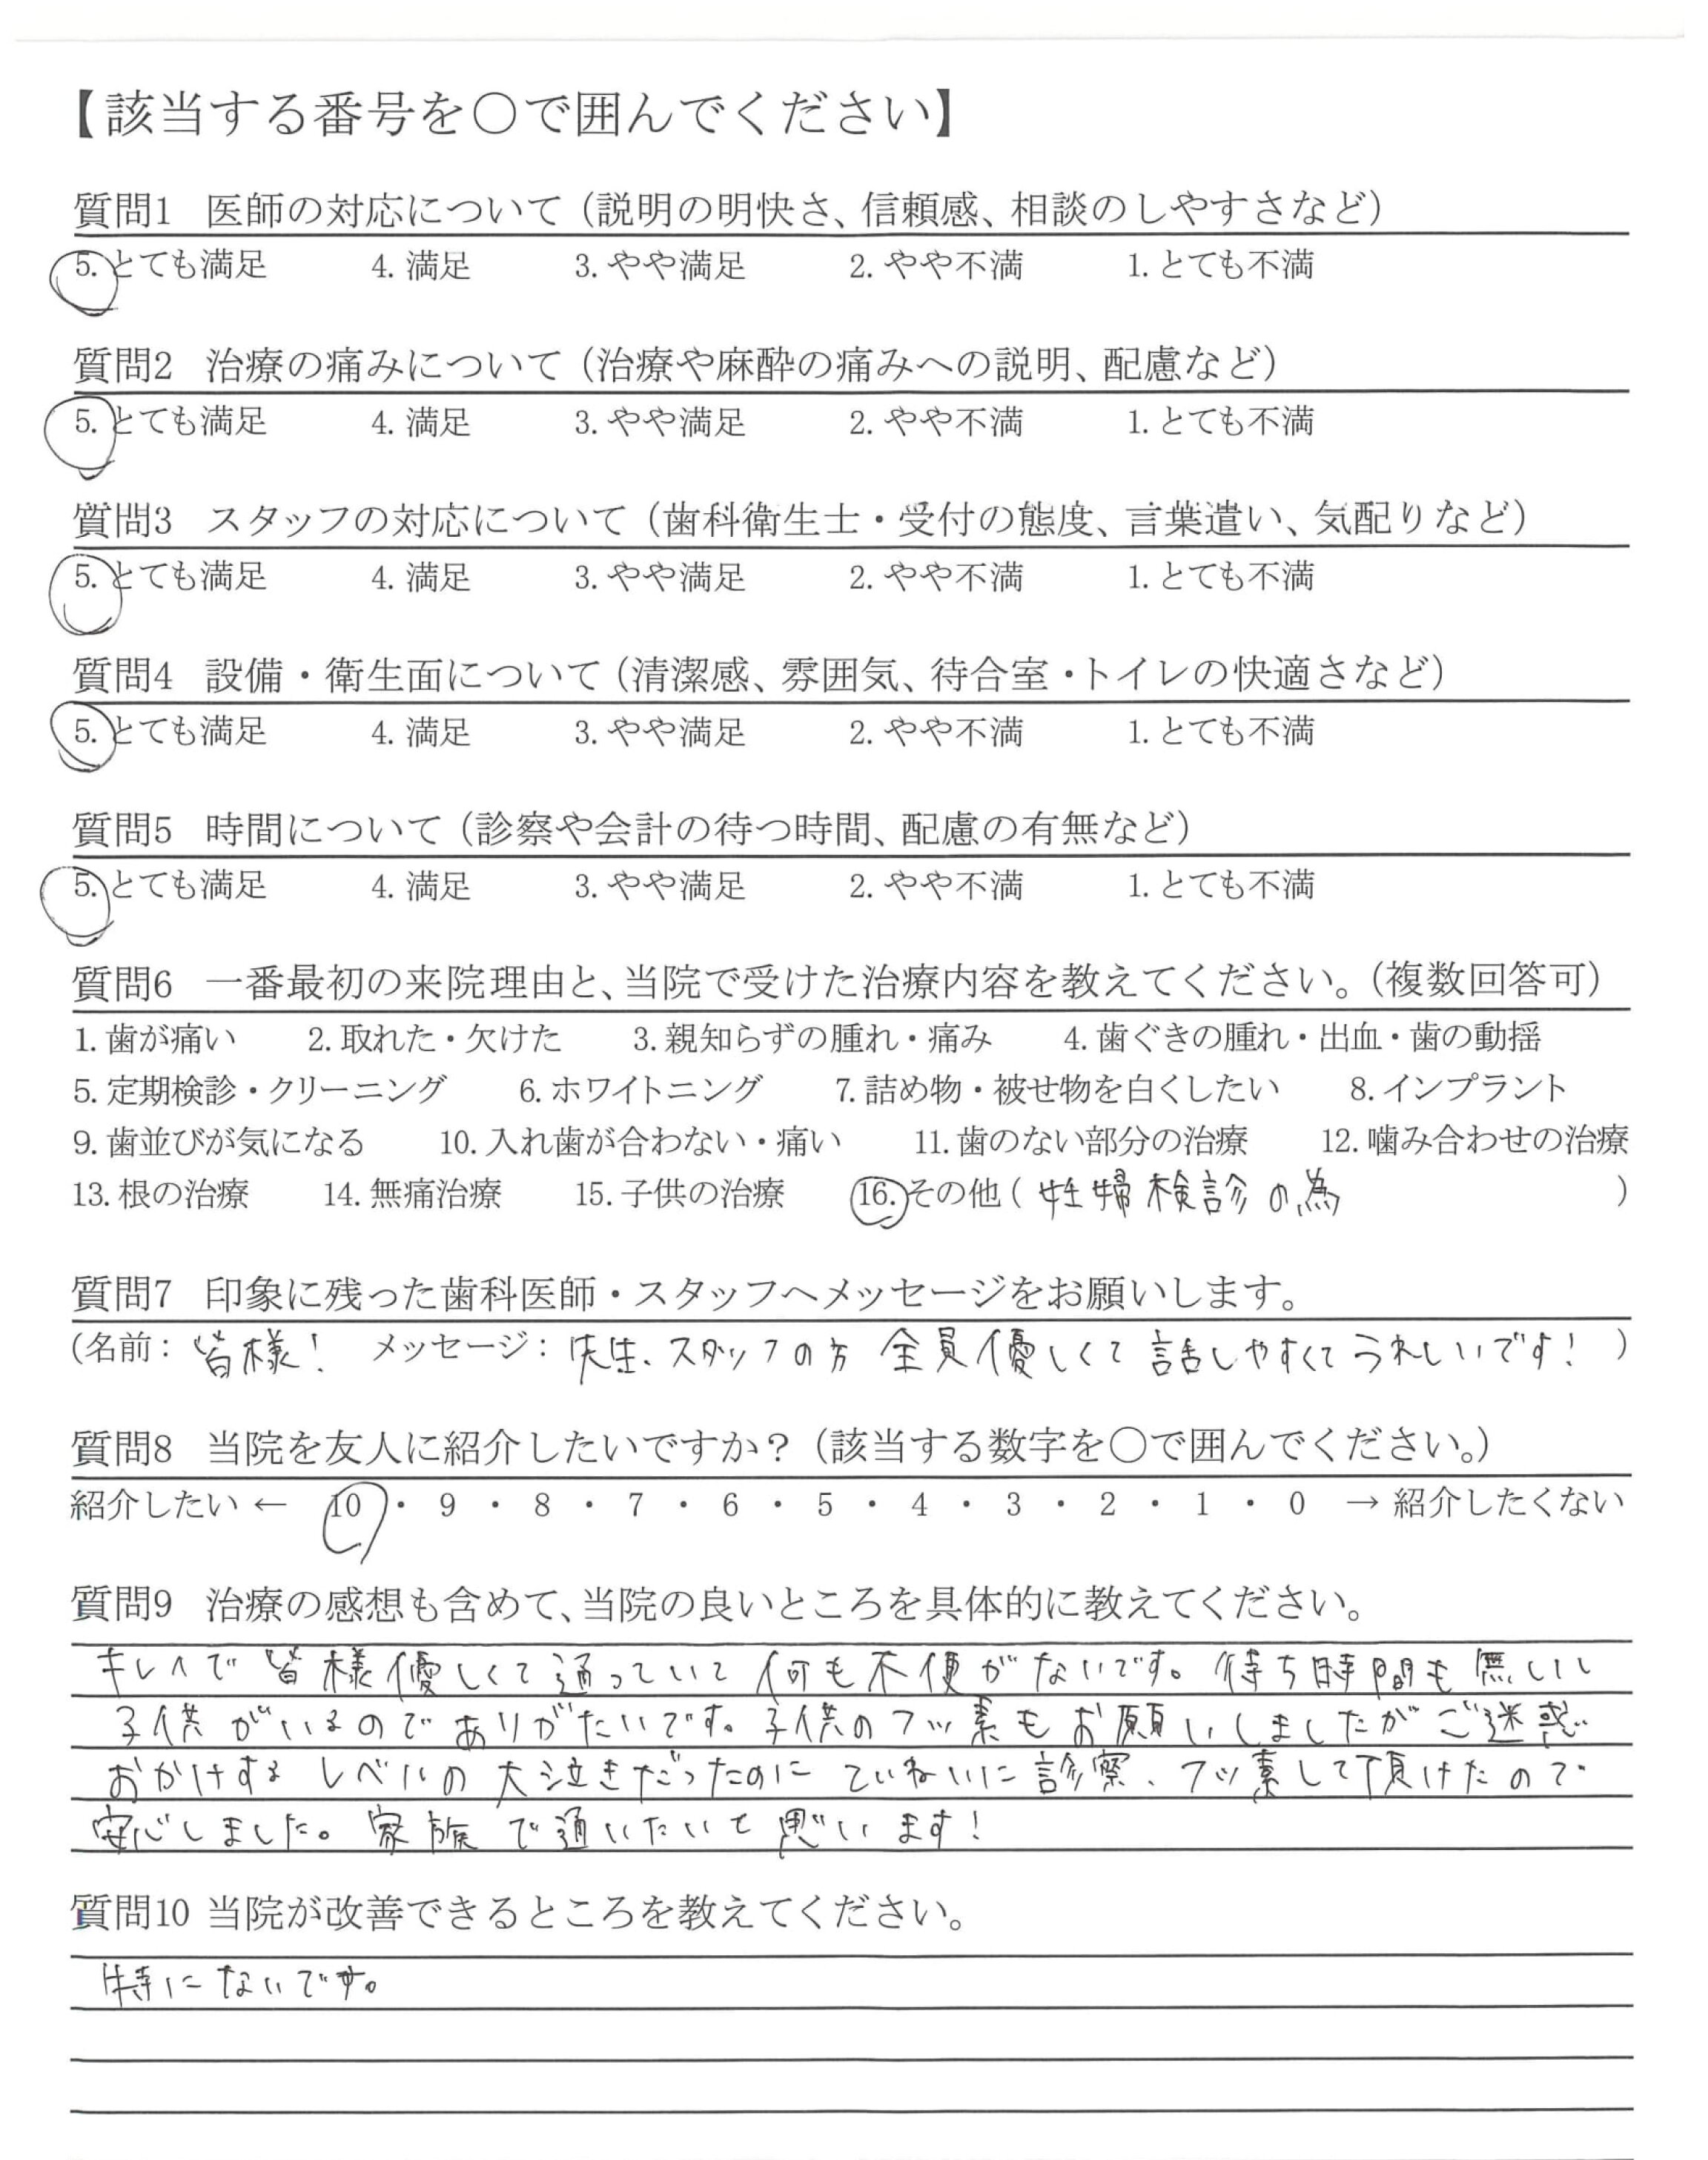 【該当する番号を〇で囲んでください】
質問1 医師の対応について（説明の明快さ、信頼感、相談のしやすさなど）
5. とても満足 4. 満足 3. やや満足 2. やや不満 1. とても不満
質問2 治療の痛みについて（治療や麻酔の痛みへの説明、配慮など）
5. とても満足 4. 満足 3. やや満足 2. やや不満 1. とても不満
質問3 スタッフの対応について（歯科衛生士・受付の態度、言葉遣い、気配りなど）
5. とても満足 4. 満足 3. やや満足 2. やや不満 1. とても不満
質問4 設備・衛生面について（清潔感、雰囲気、待合室・トイレの快適さなど）
5. とても満足 4. 満足 3. やや満足 2. やや不満 1. とても不満
質問5 時間について（診察や会計の待つ時間、配慮の有無など）
5. とても満足 4. 満足 3. やや満足 2. やや不満 1. とても不満
質問6 一番最初の来院理由と、当院で受けた治療内容を教えてください。（複数回答可）
1. 歯が痛い 2. 取れた・欠けた 3. 親知らずの腫れ・痛み 4. 歯ぐきの腫れ・出血・歯の動揺
5. 定期検診・クリーニング 6. ホワイトニング 7. 詰め物・被せ物を白くしたい 8. インプラント
9. 歯並びが気になる 10. 入れ歯が合わない・痛い 11. 歯のない部分の治療 12. 噛み合わせの治療
13. 根の治療 14. 無痛治療 15. 子供の治療 16. その他（妊婦検診の為）
質問7 印象に残った歯科医師・スタッフへメッセージをお願いします。
（名前：皆様！ メッセージ：先生、スタッフの方 全員優しくて話しやすくてうれしいです！）
質問8 当院を友人に紹介したいですか？（該当する数字を〇で囲んでください。）
紹介したい ← 10 ・ 9 ・ 8 ・ 7 ・ 6 ・ 5 ・ 4 ・ 3 ・ 2 ・ 1 ・ 0 → 紹介したくない
質問9 治療の感想も含めて、当院の良いところを具体的に教えてください。
キレイで皆様優しくて通っていて何も不便がないです。待ち時間も無いし
子供がいるのでありがたいです。子供のフッ素もお願いしましたがご迷惑
おかけするレベルの大泣きだったのにていねいに診察、フッ素して頂けたので
安心しました。家族で通いたいと思います！
質問10 当院が改善できるところを教えてください。
特にないです。